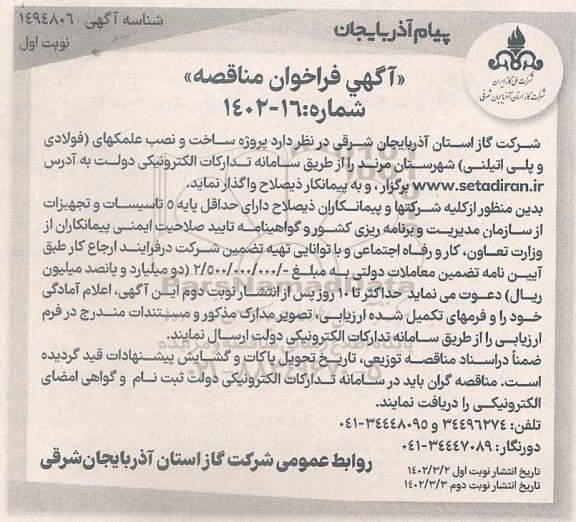 شناسه آگهی: ۱۴۹۴۸۰۶
نوبت اول
پیام آذربایجان
شرکت ملی گاز ایران
شرکت گاز استان آذربایجان شرقی
«آگهي فراخوان مناقصه»
شماره:۱۶-۱۴۰۲
شرکت گاز استان آذربایجان شرقی در نظر دارد پروژه ساخت و نصب علمکهای (فولادی
و پلی اتیلنی) شهرستان مرند را از طریق سامانه تدارکات الکترونیکی دولت به آدرس
www.setadiran.ir برگزار ، و به پیمانکار ذیصلاح واگذار نماید.
بدین منظور ازکلیه شرکتها و پیمانکاران ذیصلاح دارای حداقل پایه ۵ تاسیسات و تجهیزات
از سازمان مدیریت و برنامه ریزی کشور و گواهینامه تایید صلاحیت ایمنی پیمانکاران از
وزارت تعاون، کار و رفاه اجتماعی و با توانایی تهیه تضمین شرکت درفرایند ارجاع کار طبق
آیین نامه تضمین معاملات دولتی به مبلغ -/۲/۵۰۰/۰۰۰/۰۰۰ (دو میلیارد و پانصد میلیون
ریال) دعوت می نماید حداکثر تا ۱۰ روز پس از انتشار نوبت دوم این آگهی، اعلام آمادگی
خود را و فرمهای تکمیل شده ارزیابی، تصویر مدارک مذکور و مستندات مندرج در فرم
ارزیابی را از طریق سامانه تدارکات الکترونیکی دولت ارسال نمایند.
ضمناً دراسناد مناقصه توزیعی، تاریخ تحویل پاکات و گشایش پیشنهادات قید گردیده
است. مناقصه گران باید در سامانه تدارکات الکترونیکی دولت ثبت نام و گواهی امضای
الکترونیکی را دریافت نمایند.
تلفن: ۳۴۴۹۶۲۷۴ و ۳۴۴۴۸۰۹۵-۰۴۱
دورنگار: ۳۴۴۴۷۰۸۹-۰۴۱
تاریخ انتشار نوبت اول ۱۴۰۲/۳/۲
تاریخ انتشار نوبت دوم ۱۴۰۲/۳/۳
روابط عمومی شرکت گاز استان آذربایجان شرقی